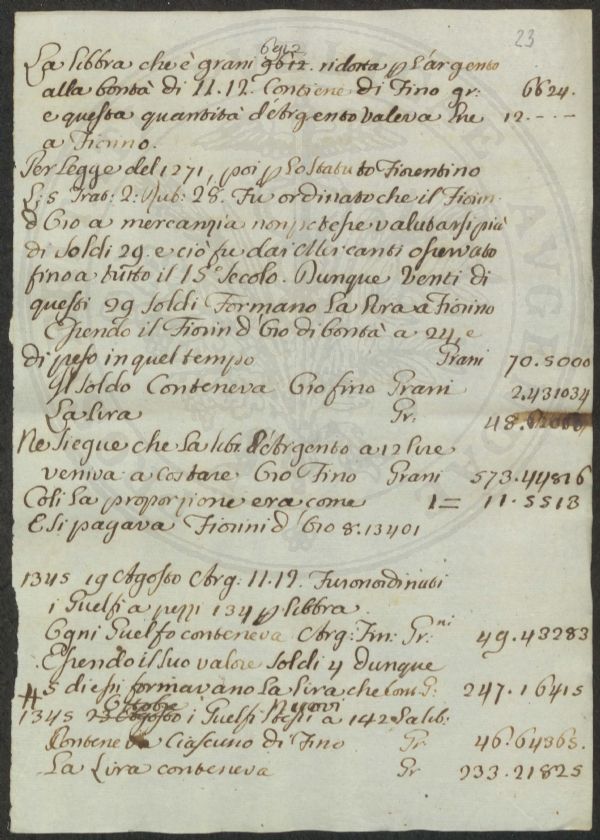 23
6912
La libbra che è grani 9612. ridotta p L'argento
alla bontà di 11.12. Contiene di Fino gr: 6624.
e questa quantità d'Argento Valeva Lire 12.---
a Fiorino.
Per Legge del 1271, poi p Lo Statuto Fiorentino
L: 5 Trat: 2: Rub: 28. Fu ordinato che il Fiorin
d'Oro a mercanzia non potesse valutarsi più
di Soldi 29. e ciò fu dai Mercanti osservato
fino a tutto il 15° Secolo. Dunque Venti di
questi 29 Soldi Formano La Lira a Fiorino
Essendo il Fiorin d'Oro di bontà a 24, e
di peso in quel tempo Grani 70.5000
Il Soldo Conteneva Oro fino Grani 2.431034
La Lira Gr: 48.62068
Ne Siegue che La libb d'Argento a 12 Lire
veniva a Costare Oro Fino Grani 573.44816
Così La proporzione era come 1= 11.5513
E Si pagava Fiorini d'Oro 8.13401
1345 19 Agosto Arg: 11.12. Furono ordinati
i Guelfi a pezzi 134 p libbra.
Ogni Guelfo conteneva Arg: Fin: Gr:ni 49.43283
Essendo il Suo valore Soldi 4 Dunque
5 di essi formavano La Lira che Cont: G: 247.16415
Ottobre nuovi
1345 23 Agosto i Guelfi Stessi a 142 La lib:
Contene Ciascuno di Fino Gr 46.64365.
La Lira conteneva Gr 233.21825